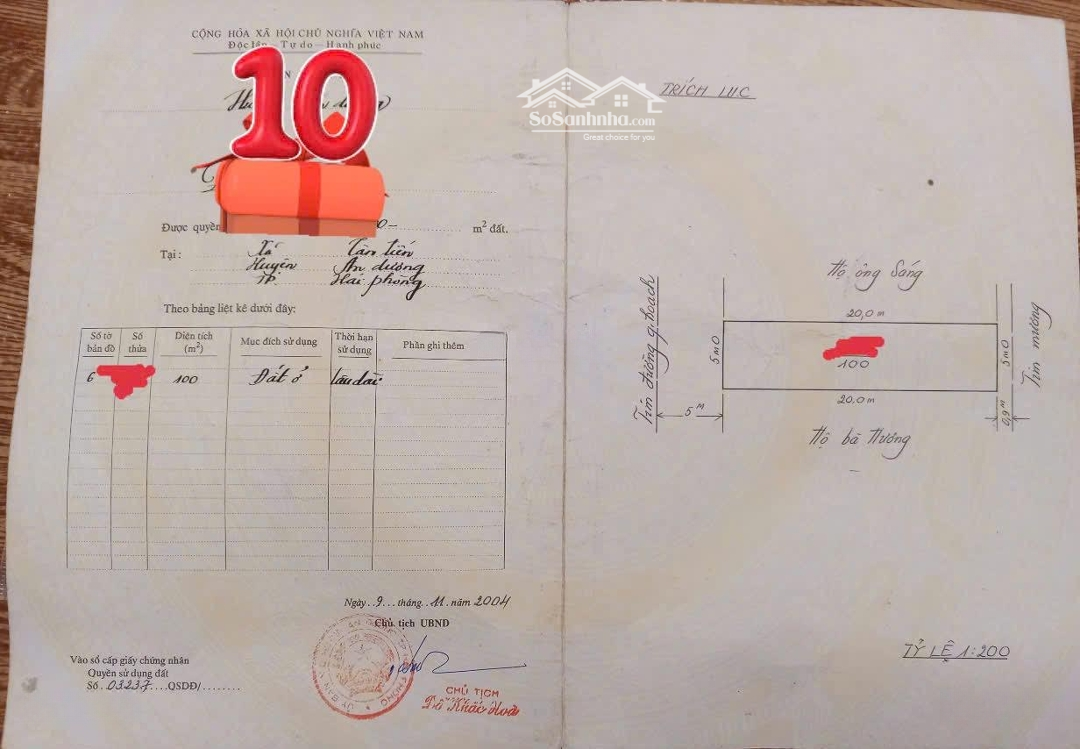 CỘNG HÒA XÃ HỘI CHỦ NGHĨA VIỆT NAM
Độc lập - Tự do - Hạnh phúc
10
Được quyền
m² đất.
Tại :
Xã Tân tiến
Huyện An dương
TP. Hải phòng
Theo bảng liệt kê dưới đây:
Số tờ bản đồ
Số thửa
Diện tích (m²)
Mục đích sử dụng
Thời hạn sử dụng
Phần ghi thêm
6 100 Đất ở Lâu dài
Ngày..9...tháng..11.năm 2004
Chủ tịch UBND
Vào sổ cấp giấy chứng nhân
Quyền sử dụng đất
Số..03237....QSDĐ/........
CHỦ TỊCH
Đỗ Khắc Hoà
SoSanhnha.com
Great choice for you
TRÍCH LỤC
Hộ ông Sáng
20,0 m
Tim đường q.hoạch
5m0
100
5m0
Tim mương
20.0 m
5 M
0,9 M
Hộ bà Hương
TỶ LỆ 1:200